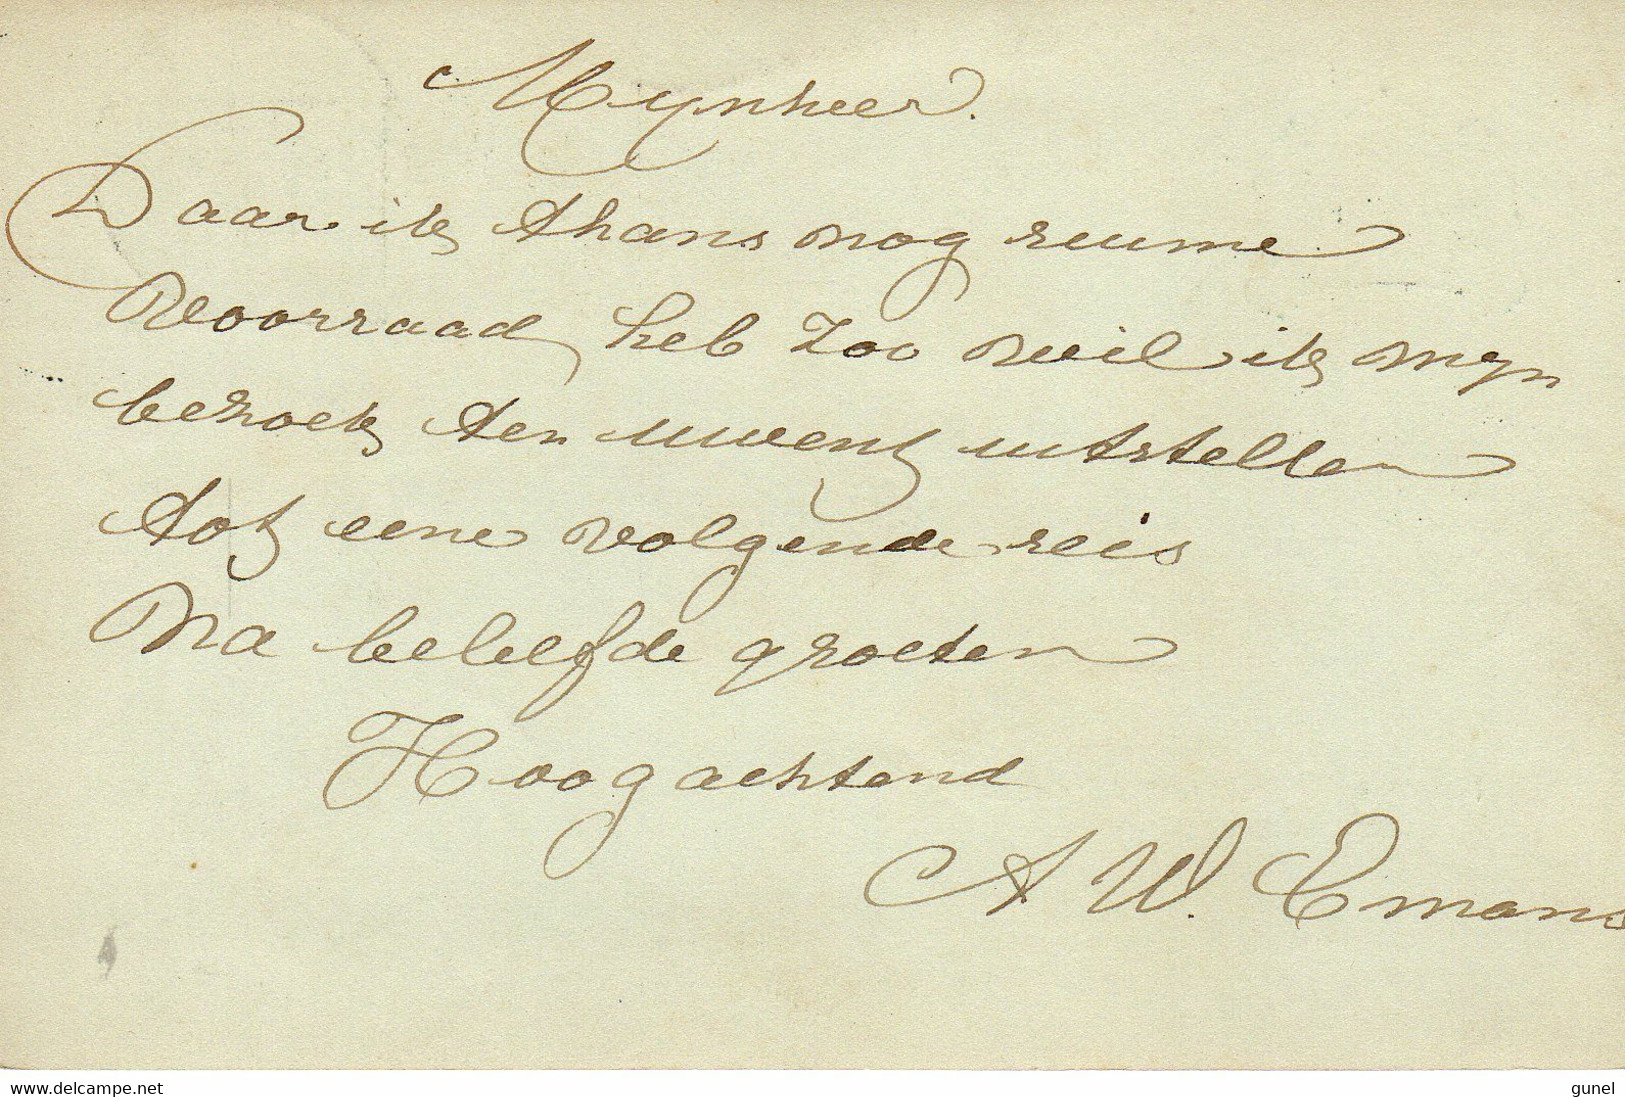 Mynheer.
Daar ik thans nog ruime
Voorraad heb Zoo wil ik myn
bezoek ten uwent uitstellen
tot eene volgende reis
Na beleefde groeten
Hoogachtend
A W. Emans
www.delcampe.net
gunel